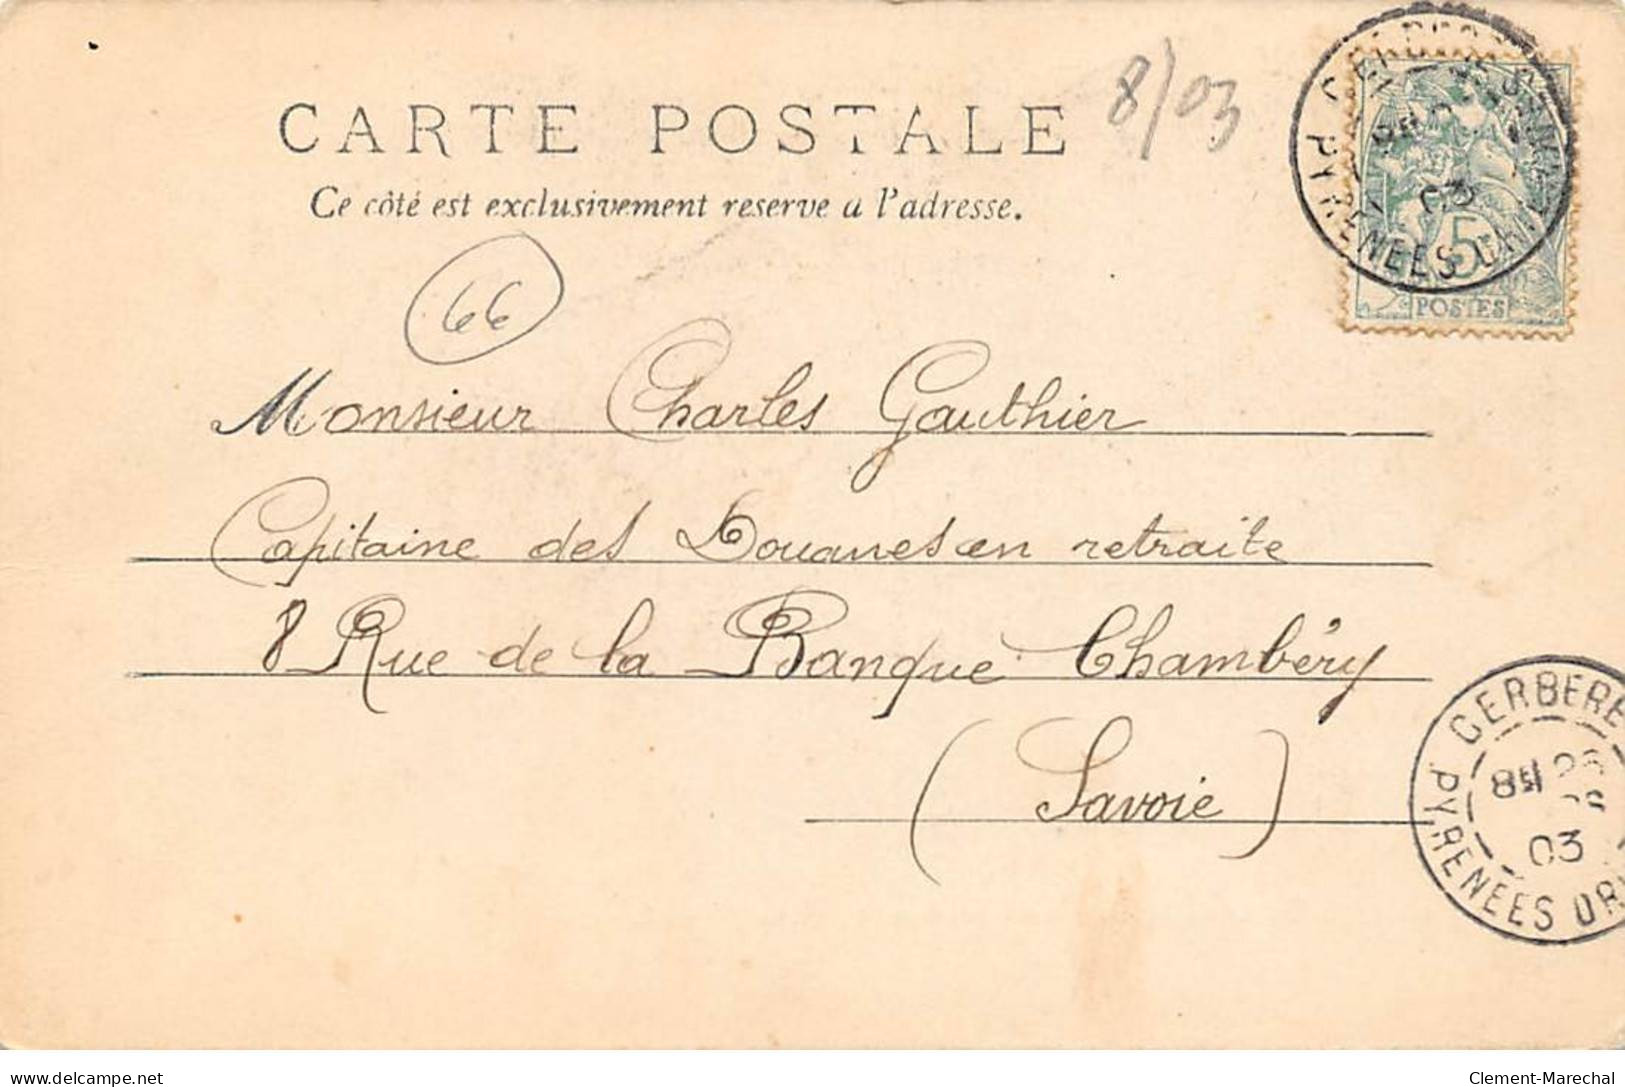 CARTE POSTALE
8/03
Ce côté est exclusivement reserve a l'adresse.
5
POSTES
PYRENEES
03
66
Monsieur Charles Gauthier
Capitaine des Douanes en retraite
8 Rue de la Banque Chambéry
(Savoie)
CERBERE
03
PYRENEES OR
delcampe.net
Clement-Marechal